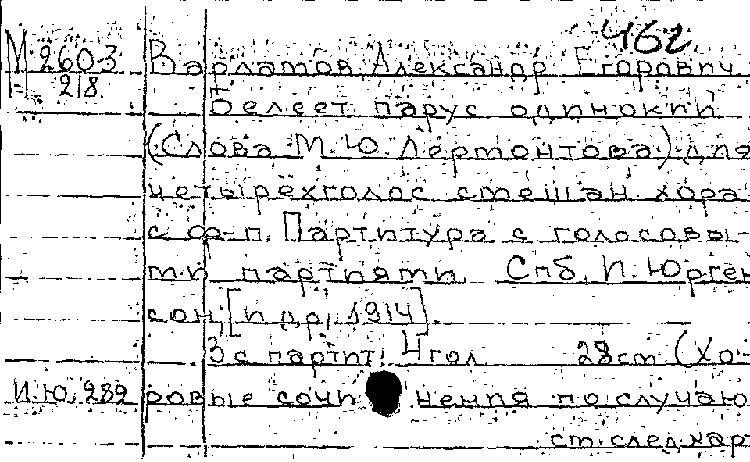 462.
М 2603 Варламов, Александр Егорович.
218 Белеет парус одинокий
(Слова М. Ю. Лермонтова) для
четырехголос. смешан. хора
с ф-п. Партитура с голосовы-
ми партиями. Спб., И. Юрген
сон, [и др., 1914].
3 с. партит. 4 гол. 28 см (Хо-
И. Ю. 289 ровые сочинения по случаю
см. след. кар